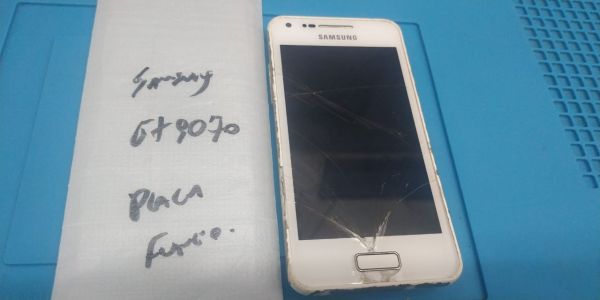 Samsung
GT9070
Placa
Funcio.
SAMSUNG